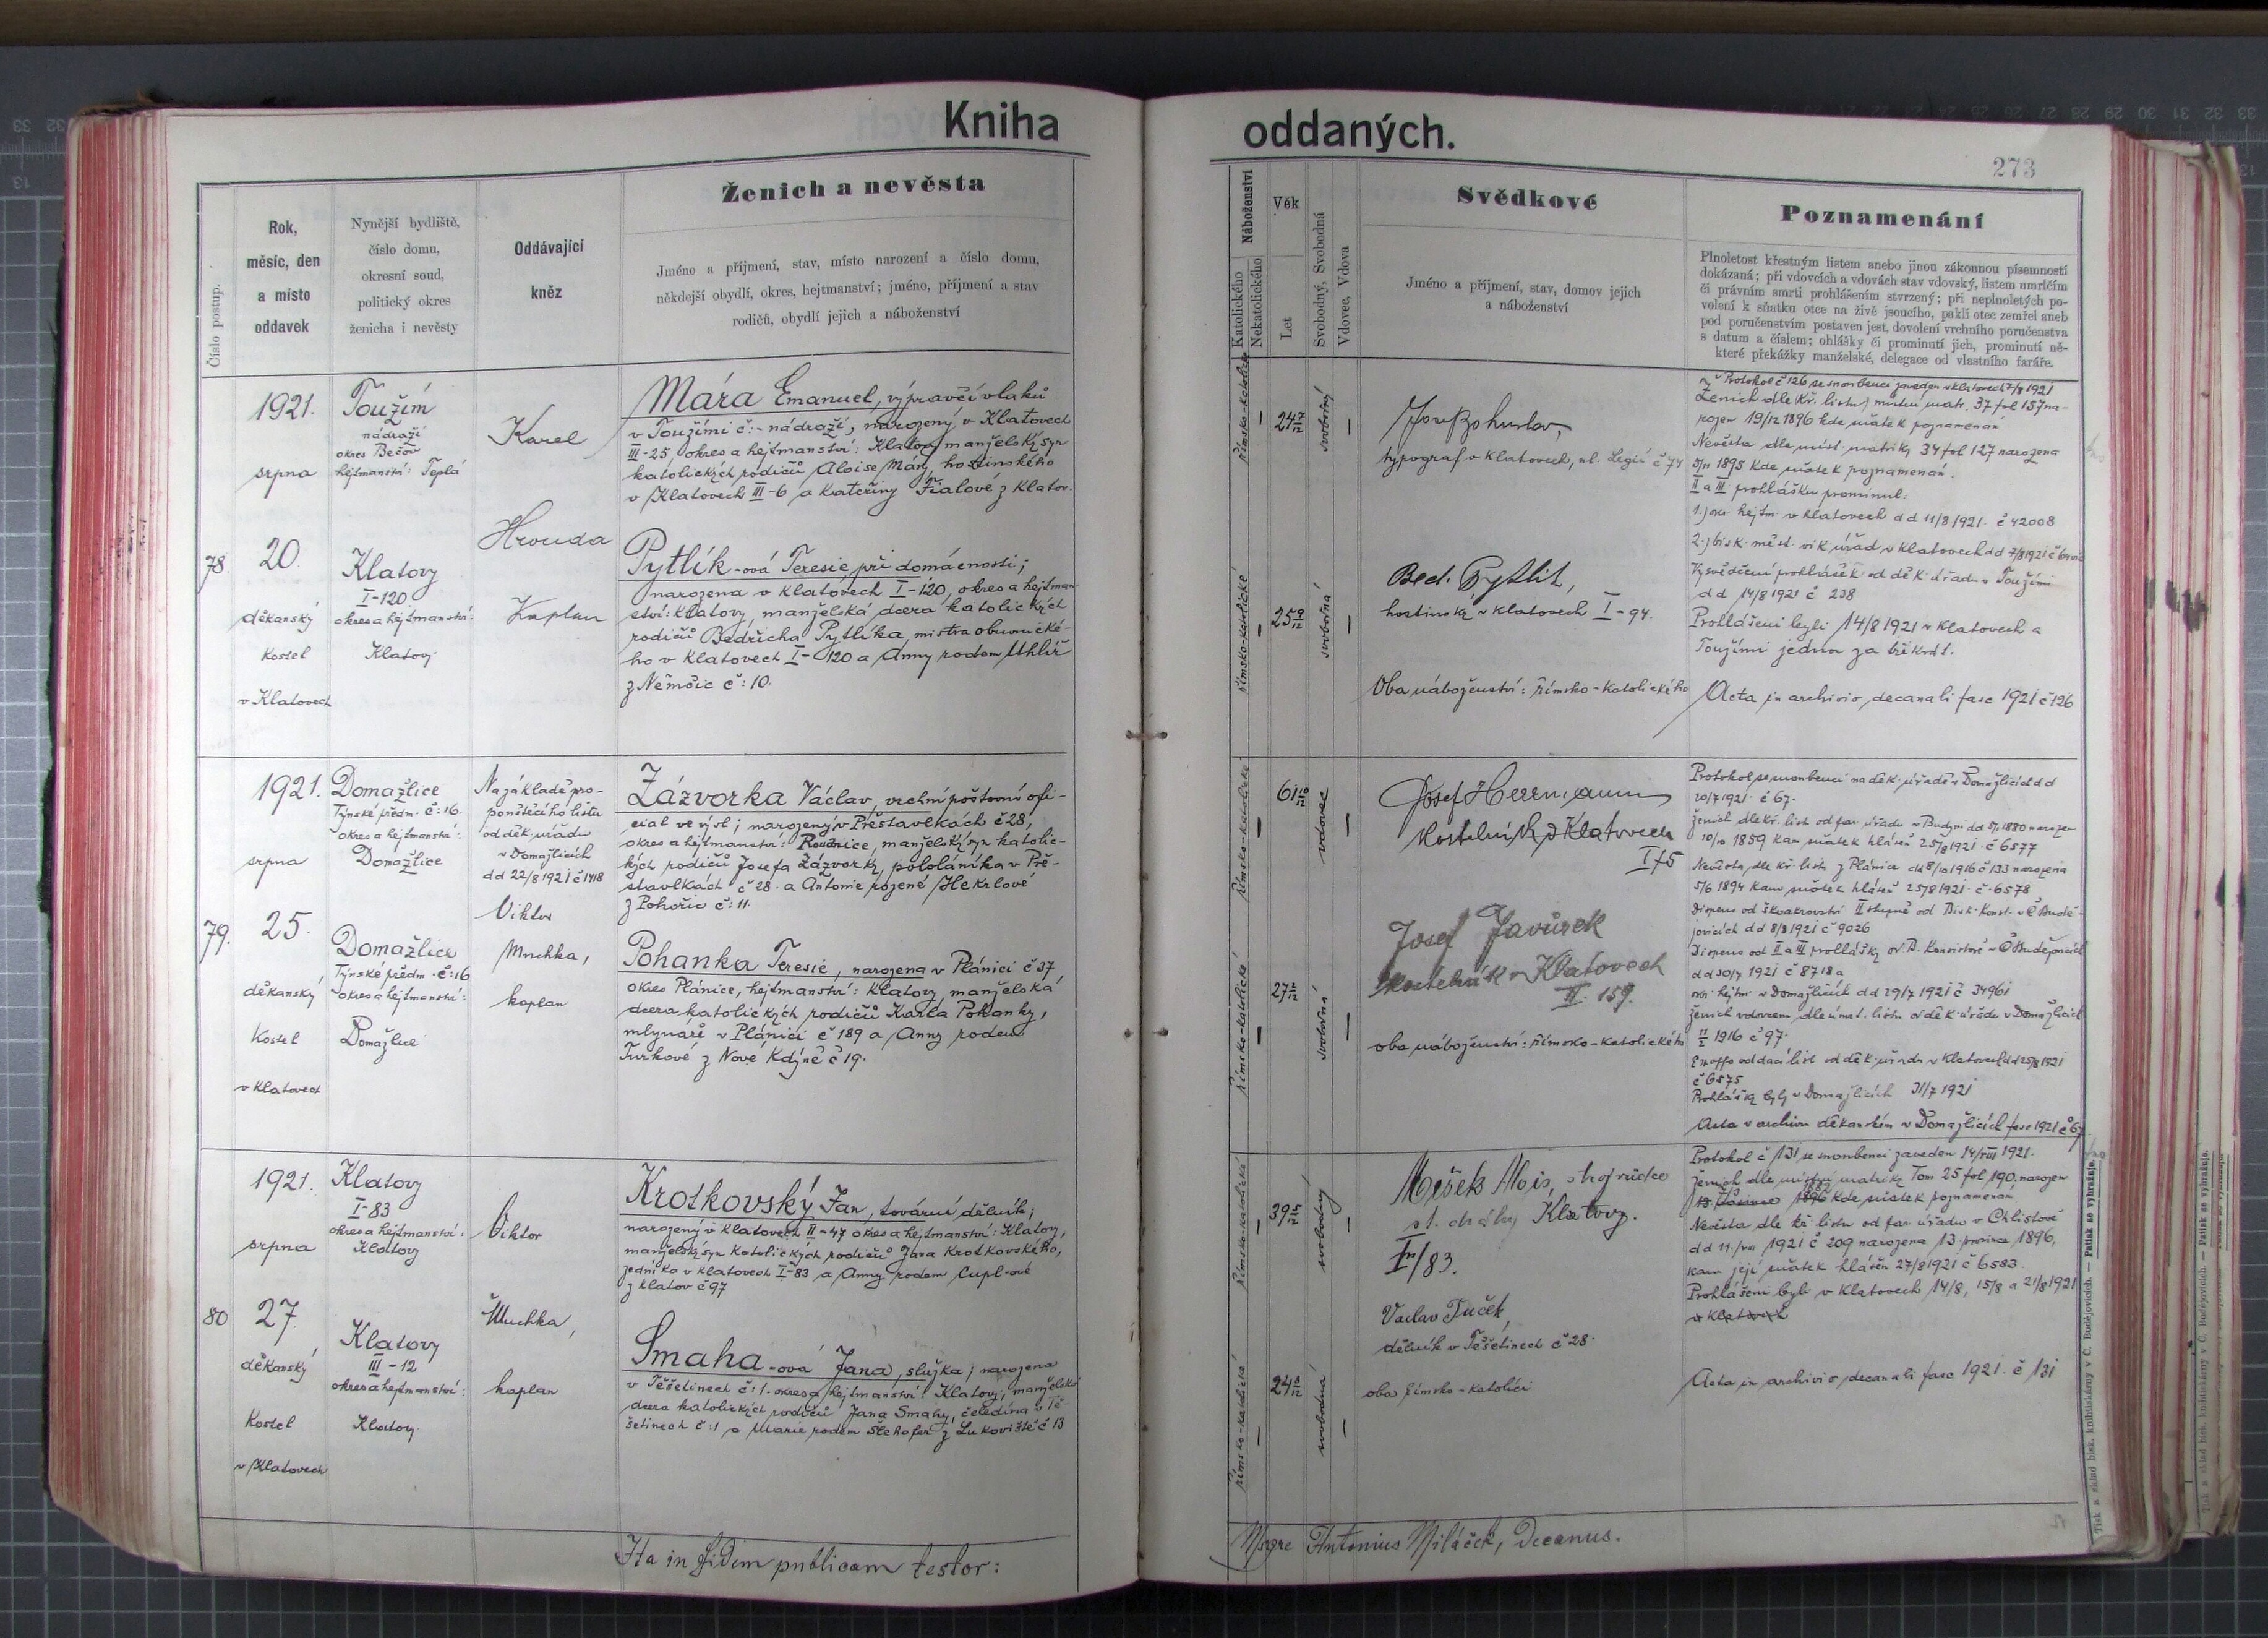 Kniha
oddaných.
273
Číslo postup.
Rok,
měsíc, den
a místo
oddavek
Nynější bydliště,
číslo domu,
okresní soud,
politický okres
ženicha i nevěsty
Oddávající
kněz
Ženich a nevěsta
Jméno a příjmení, stav, místo narození a číslo domu,
někdejší obydlí, okres, hejtmanství; jméno, příjmení a stav
rodičů, obydlí jejich a náboženství
Náboženství
Katolického
Nekatolického
Věk
Let
Svobodný, Svobodná
Vdovec, Vdova
Svědkové
Jméno a příjmení, stav, domov jejich
a náboženství
Poznamenání
Plnoletost křestným listem anebo jinou zákonnou písemností
dokázaná; při vdovcích a vdovách stav vdovský, listem umrlčím
či právním smrti prohlášením stvrzený; při neplnoletých po-
volení k sňatku otce na živě jsoucího, pakli otec zemřel aneb
pod poručenstvím postaven jest, dovolení vrchního poručenstva
s datum a číslem; ohlášky či prominutí jich, prominutí ně-
které překážky manželské, delegace od vlastního faráře.
78.
1921.
srpna
20.
děkanský
kostel
v Klatovech
Toužím
nádraží
okres Bečov
hejtmanství: Teplá
Klatovy
I-120
okres a hejtmanství:
Klatovy
Karel
Hrouda
Kaplan
Mára Emanuel, výpravčí vlaků
v Toužími č:- nádraží, narozený v Klatovech
III-25 okres a hejtmanství: Klatovy manželský syn
katolických rodičů Aloise Máry, hostinského
v Klatovech III-6 a Kateřiny Fialové z Klatov.
Pytlík-ová Teresie, při domácnosti;
narozena v Klatovech I-120, okres a hejtman-
ství: Klatovy, manželská dcera katolických
rodičů Bedřicha Pytlíka, mistra obuvnické-
ho v Klatovech I-120 a Anny rodem Uhlíř
z Němčic č: 10.
římsko-katolické
24 7/12
svobodný
římsko-katolické
25 9/12
svobodná
typograf v Klatovech, ul. Legií č 74
Bed. Pytlík,
hostinský v Klatovech I-94.
Oba náboženství: římsko-katolického
Protokol č 126 se snoubenci zaveden v Klatovech 7/8 1921
Ženich dle (kř. listu) místní matr. 37 fol 157 na-
rozen 19/12 1896 kde sňatek poznamenán
Nevěsta dle míst. matriky 34 fol 127 narozena
5/11 1895 kde sňatek poznamenán.
II a III prohlášku prominul:
1.) okr. hejtm. v Klatovech dd 11/8 1921. č 42008
2.) bisk. měst. vik úřad v Klatovech dd 7/8 1921 č
Vysvědčení prohlášek od děk. úřadu v Toužimi
dd 14/8 1921 č 238
Prohlášeni byli 14/8 1921 v Klatovech a
Toužimi jednou za třikrát.
Acta in archivio decanali fasc 1921 č 126
79.
1921.
srpna
25.
děkanský
kostel
v Klatovech
Domažlice
Týnské předm. č: 16.
okres a hejtmanství:
Domažlice
Domažlice
Týnské předm. č: 16
okres a hejtmanství:
Domažlice
Na základě pro-
pouštěcího listu
od děk. úřadu
v Domažlicích
dd 22/8 1921 č 1418
Viktor
Muchka,
kaplan
Zázvorka Václav, vrchní poštovní ofi-
cial ve výsl; narozený v Přestavlkách č 28,
okres a hejtmanství: Roudnice, manželský syn katolic-
kých rodičů Josefa Zázvorky, pololáníka v Pře-
stavlkách č 28. a Antonie rozené Hekrlové
z Pohořic č: 11.
Pohanka Teresie, narozena v Plánici č 37
okres Plánice, hejtmanství: Klatovy, manželská
dcera katolických rodičů Karla Pohanky,
mlynáře v Plánici č 189 a Anny rodem
Turkové z Nové Kdýně č 19.
římsko-katolické
61 10/12
vdovec
římsko-katolické
27 2/12
svobodná
Josef Herrmann
kostelník v Klatovech
I 75
Josef Javůrek
kostelník v Klatovech
II. 159.
oba náboženství: římsko-katolického
Protokol se snoubenci na děk. úřadě v Domažlicích dd
20/7 1921 č 67.
Ženich dle kř. list od far. úřadu v Budyni dd 5/1 1880 narozen
10/10 1859 kam sňatek hlášen 25/8 1921 č 6577
Nevěsta dle kř. listu z Plánice dd 8/10 1916 č 133 narozena
5/6 1894 kam sňatek hlášen 25/8 1921. č. 6578
Dispens od švakrovství II stupně od Bisk. Konst. v Č Budě-
jovicích dd 8/8 1921 č 9026
Dispens od II a III prohlášky od B. Konsistoře v Č Budějovicích
dd 30/7 1921 č 8718 a
okr. hejtm. v Domažlicích dd 29/7 1921 č 34961
Ženich vdovcem dle úmrt. listu od děk. úřadu v Domažlicích
1916 č 97.
Ex offo oddací list od děk. úřadu v Klatovech dd 25/8 1921
č 6575
Prohlášky byly v Domažlicích 31/7 1921
Acta v archivu děkanském v Domažlicích fasc 1921 č 67
80
1921.
srpna
27.
děkanský
kostel
v Klatovech
Klatovy
I-83
okres a hejtmanství:
Klatovy
Klatovy
III-12
okres a hejtmanství:
Klatovy.
Viktor
Muchka,
kaplan
Krotkovský Jan, tovární dělník;
narozený v Klatovech II-47 okres a hejtmanství: Klatovy,
manželský syn katolických rodičů Jana Krotkovského,
zedníka v Klatovech I-83 a Anny rodem Cupl-ové
z Klatov č 97
Smaha-ová Jana, služka; narozena
v Těšetinech č: 1. okres a hejtmanství: Klatovy; manželská
dcera katolických rodičů Jana Smahy, čeledína v Tě-
šetinech č: 1 a Marie rodem Šlehofer z Lukoviště č 13
římsko-katolické
39
svobodný
římsko-katolické
24
svobodná
Mešek Alois, strojvůdce
st. dráhy Klatovy.
/83.
Vaclav Tuček,
dělník v Těšetinech č 28.
oba římsko-katolíci
Protokol č 131 se snoubenci zaveden 14/VIII 1921.
Ženich dle místní matriky Tom 25 fol 190, narozen
1882
1896 kde sňatek poznamenán
Nevěsta dle kř. listu od far. úřadu v Chlistově
dd 11./VIII 1921 č 209 narozena 13. prosince 1896,
kam její sňatek hlášen 27/8 1921 č 6583.
Prohlášeni byli v Klatovech 14/8, 15/8 a 21/8 1921
v Klatovech
Acta in archivio decanali fasc 1921. č 131
Ita in fidem publicam testor:
Msgre Antonius Miláček, Decanus.
Tisk a sklad bisk. knihtiskárny v Č. Budějovicích. — Patisk se vyhražuje.
Tisk a sklad bisk. knihtiskárny v Č. Budějovicích. — Patisk se vyhražuje.